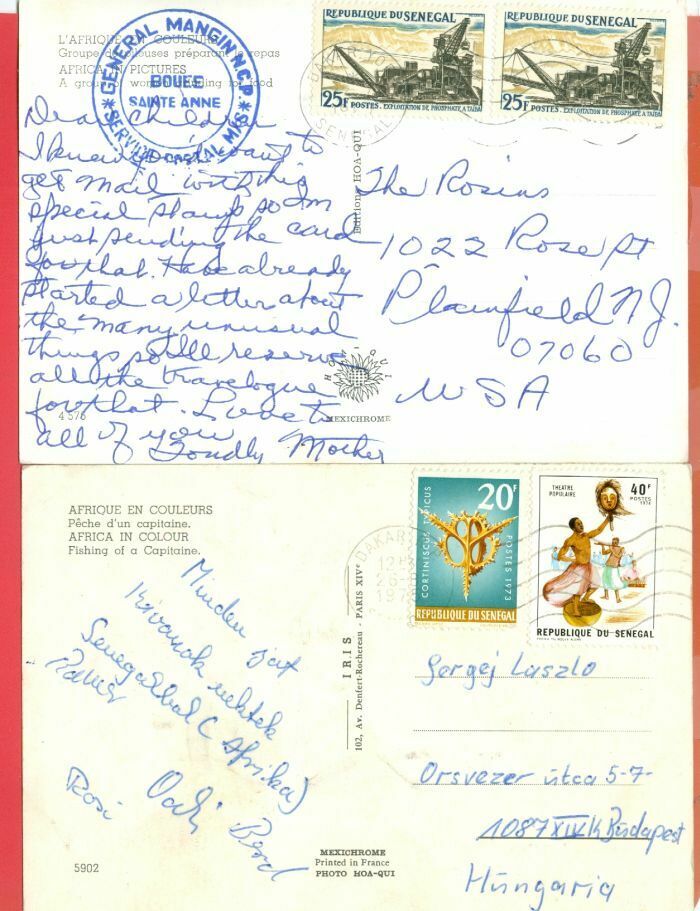 L'AFRIQUE EN COULEURS
Groupe de pileuses préparant le repas
AFRICA IN PICTURES
A group of women for food
GENERAL MANGIN N.C.P.
BOUEE
SAINTE ANNE
SERVICE POSTAL M/S
REPUBLIQUE DU SENEGAL
25F POSTES. EXPLOITATION DE PHOSPHATE A TAÏBA
REPUBLIQUE DU SENEGAL
25F POSTES. EXPLOITATION DE PHOSPHATE A TAÏBA
SENEGAL
Dear Children
I knew you'd want to
get mail with this
special stamp so Im
just sending the card
for that. Have already
started a letter about
the many unusual
things so I'll reserve
all the travelogue
for that. Love to
all of you
Fondly Mother
4576
Editions HOA-QUI
HOA QUI
MEXICHROME
The Rosins
1022 Rose St
Plainfield N.J.
07060
USA
AFRIQUE EN COULEURS
Pêche d'un capitaine.
AFRICA IN COLOUR
Fishing of a Capitaine.
DAKAR
20F
CORTINISCUS TYPICUS
POSTES 1973
REPUBLIQUE DU SENEGAL
THEATRE
POPULAIRE
40F
POSTES
1974
REPUBLIQUE DU SENEGAL
Minden jót
kivanok nektek
Senegalbol (Afrika)
Rosi
5902
IRIS
102, Av. Denfert-Rochereau - PARIS XIVe
MEXICHROME
Printed in France
PHOTO HOA-QUI
Gergej Laszlo
Orsvezer útca 5-7-
1087 XIV K Budapest
Hungaria